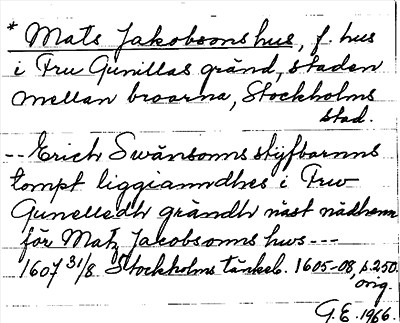 * Mats Jakobsons hus, f. hus
i Fru Gunillas gränd, staden
mellan broarna, Stockholms
stad.
-- Erich Swänsonns styfbarnns
tompt liggianndhes i Frw
Gunelledh grändh näst nädhenn
för Matz Jacobsonns hws ---
1607 31/8. Stockholms tänkeb. 1605-08, p. 250.
orig.
G.E. 1966.